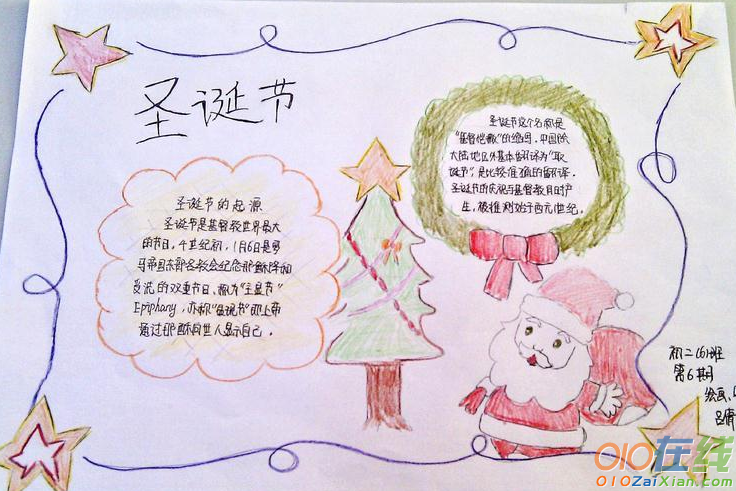 圣诞节
圣诞节的起源
圣诞节是基督教世界最大
的节日。4世纪初，1月6日是罗
马帝国东部各教会纪念耶稣降和
受洗的双重节日、称为"主显节"
Epiphany，亦称"显现节"即上帝
通过耶稣向世人显示自己。
圣诞节这个名称是
"基督弥撒"的缩写。中国除
大陆地区外基本翻译为"耶
诞节"，是比较准确的翻译。
圣诞节的庆祝与基督教同时产
生，被推测始于西元1世纪。
初二(6)班
第6期
绘画、
010在线
010ZaiXian.com